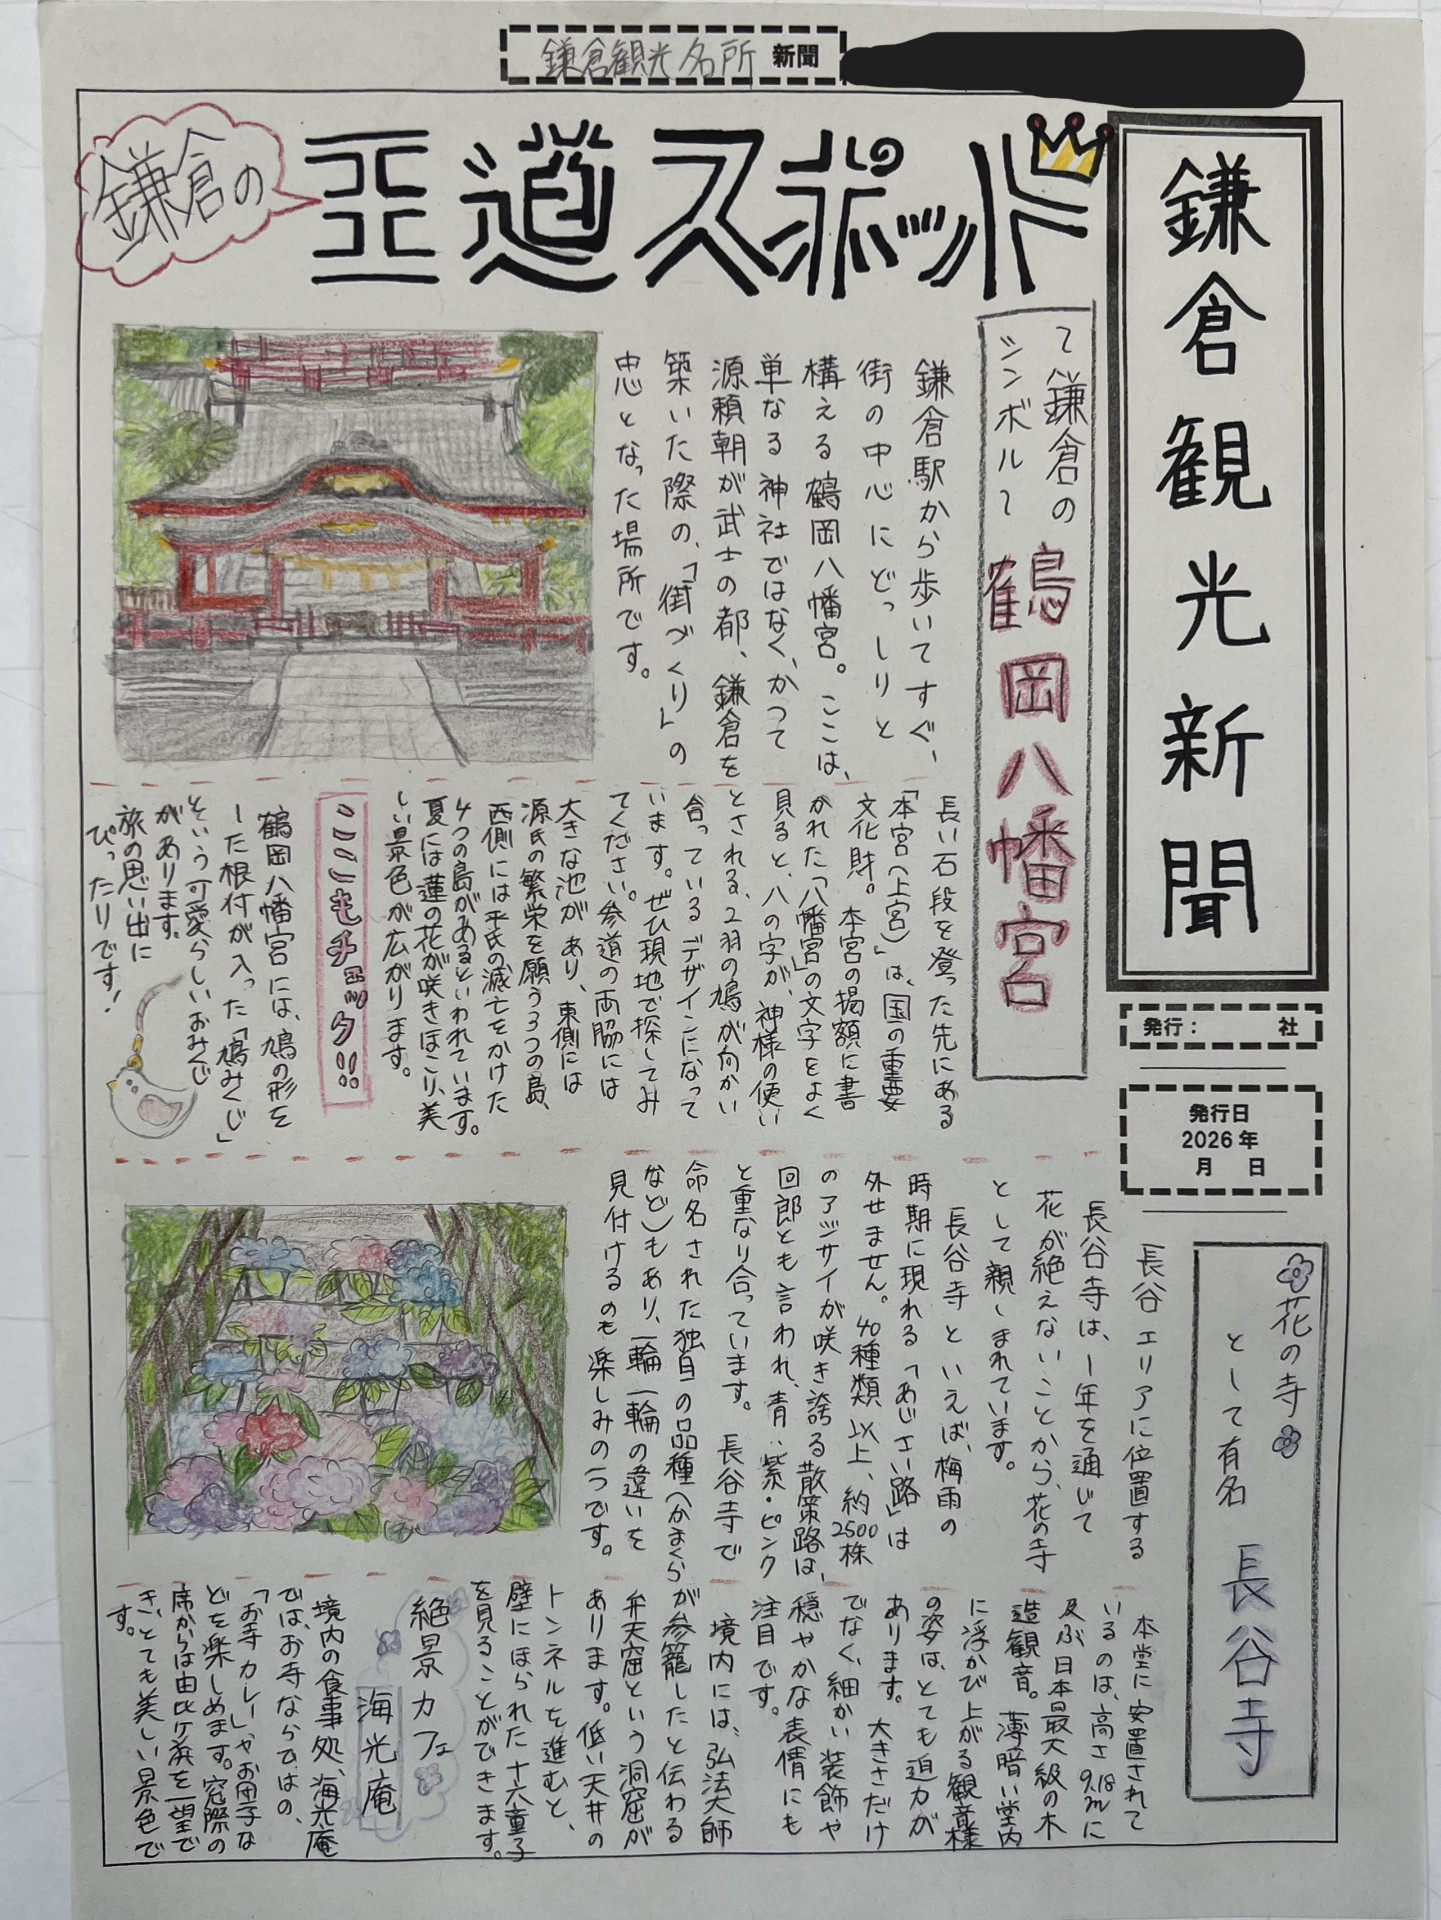 鎌倉観光名所 新聞
鎌倉観光新聞
発行: 社
発行日
2026年
月 日
鎌倉の
王道スポット
〜鎌倉の
シンボル〜
鶴岡八幡宮
鎌倉駅から歩いてすぐ、
街の中心にどっしりと
構える鶴岡八幡宮。ここは、
単なる神社ではなく、かつて
源頼朝が武士の都、鎌倉を
築いた際の、「街づくり」の
忠となった場所です。
長い石段を登った先にある
「本宮(上宮)」は、国の重要
文化財。本宮の掲額に書
かれた「八幡宮」の文字をよく
見ると、八の字が、神様の使い
とされる、2羽の鳩が向かい
合っているデザインになって
います。ぜひ現地で探してみ
てください。参道の両脇には
大きな池があり、東側には
源氏の繁栄を願う3つの島、
西側には平氏の滅亡をかけた
4つの島があるといわれています。
夏には蓮の花が咲きほこり、美
しい景色が広がります。
ここもチェック!!
鶴岡八幡宮には、鳩の形を
した根付が入った「鳩みくじ」
という可愛らしいおみくじ
があります。
旅の思い出に
ぴったりです!
花の寺
として有名
長谷寺
長谷エリアに位置する
長谷寺は、1年を通じて
花が絶えないことから、花の寺
として親しまれています。
長谷寺といえば、梅雨の
時期に現れる「あじさい路」は
外せません。40種類以上、約2500株
のアジサイが咲き誇る散策路は、
回郎とも言われ、青・紫・ピンク
と重なり合っています。長谷寺で
命名された独自の品種(かまくら
など)もあり、一輪一輪の違いを
見付けるのも楽しみの1つです。
本堂に安置されて
いるのは、高さ9.18mに
及ぶ日本最大級の木
造観音。薄暗い堂内
に浮かび上がる観音様
の姿は、とても迫力が
あります。大きさだけ
でなく、細かい装飾や
穏やかな表情にも
注目です。
境内には、弘法大師
が参籠したと伝わる
弁天窟という洞窟が
あります。低い天井の
トンネルを進むと、
壁にほられた十六童子
を見ることができます。
絶景カフェ
海光庵
境内の食事処、海光庵
では、お寺ならではの、
「お寺カレー」やお団子な
どを楽しめます。窓際の
席からは由比ケ浜を一望で
き、とても美しい景色で
す。